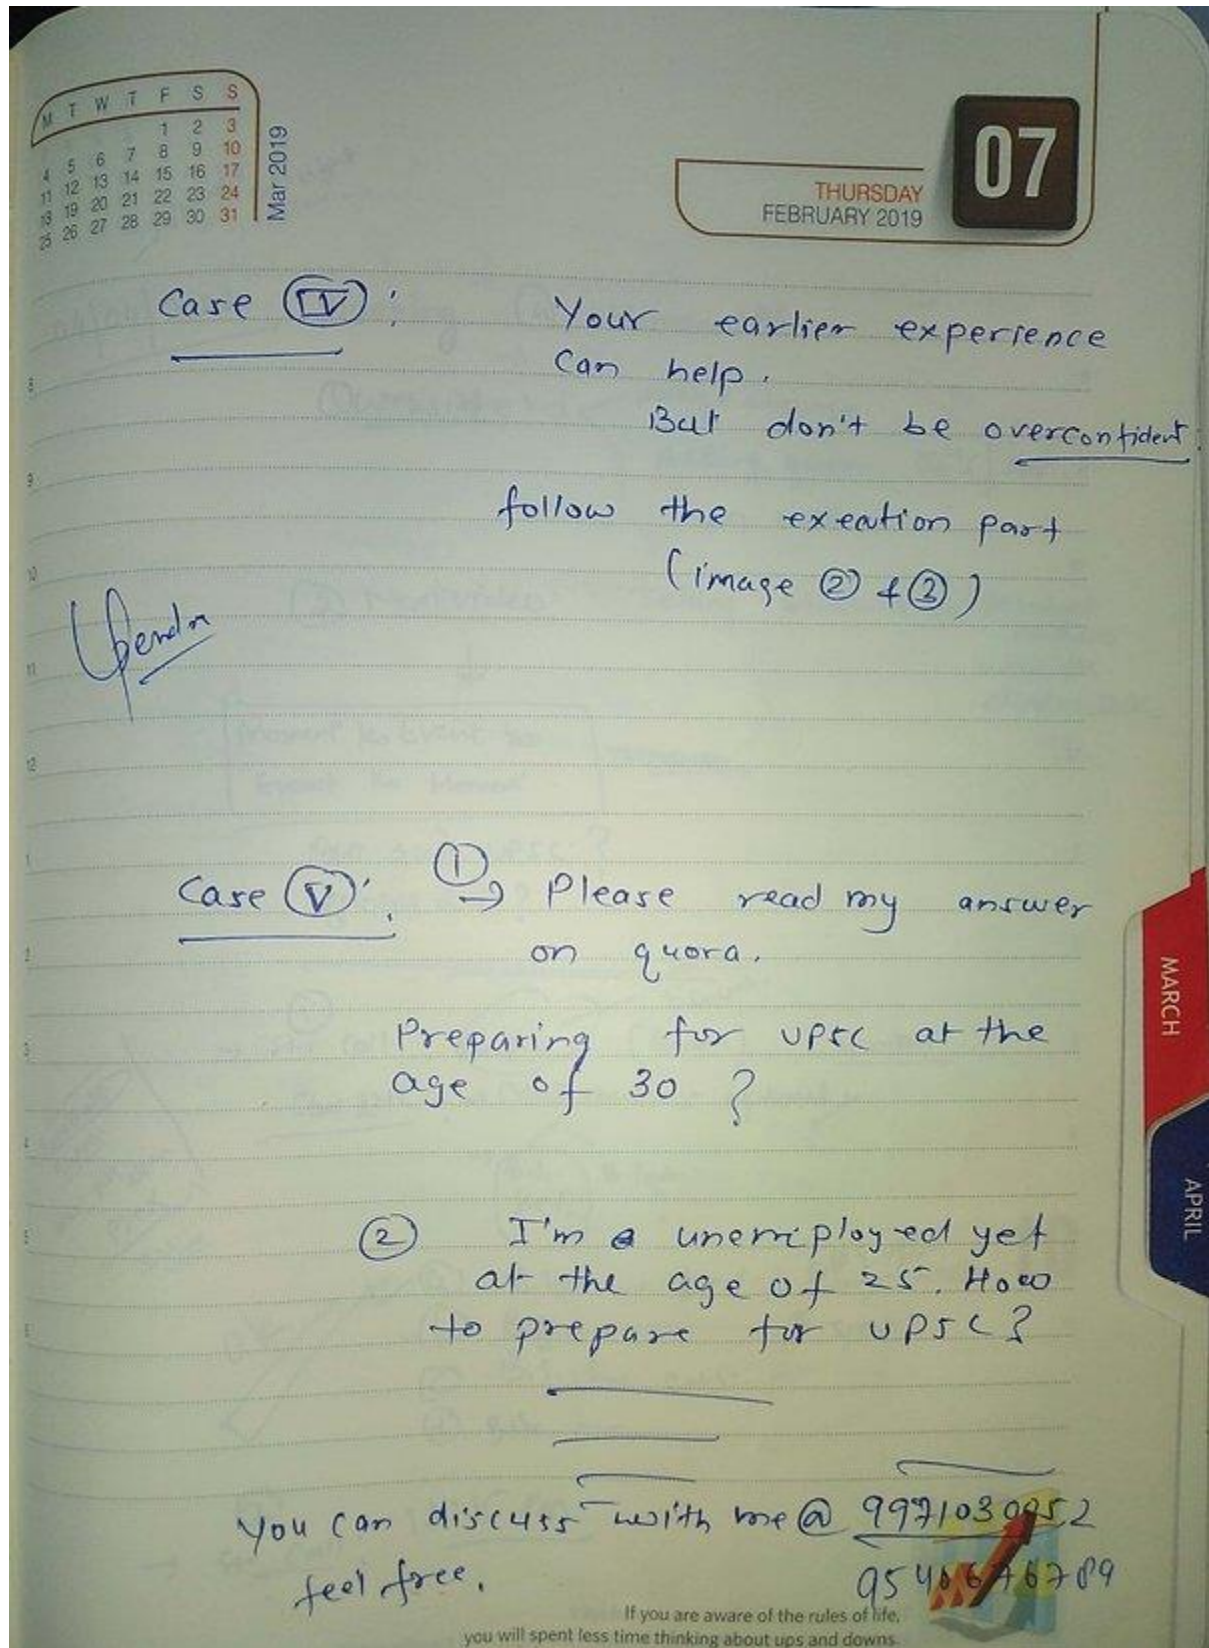 M T W T F S S
1 2 3
4 5 6 7 8 9 10
11 12 13 14 15 16 17
18 19 20 21 22 23 24
25 26 27 28 29 30 31
Mar 2019
07
THURSDAY
FEBRUARY 2019
Case IV :
Your earlier experience
can help.
But don't be overconfident.
follow the exeation part
(image 2 & 3)
8
9
10
11
12
1
2
3
4
5
6
Case V : 1 → Please read my answer
on quora.
Preparing for UPSC at the
age of 30 ?
2 I'm a unemployed yet
at the age of 25. How
to prepare for UPSC?
You can discuss with me @
feel free.
MARCH
APRIL
If you are aware of the rules of life,
you will spent less time thinking about ups and downs.